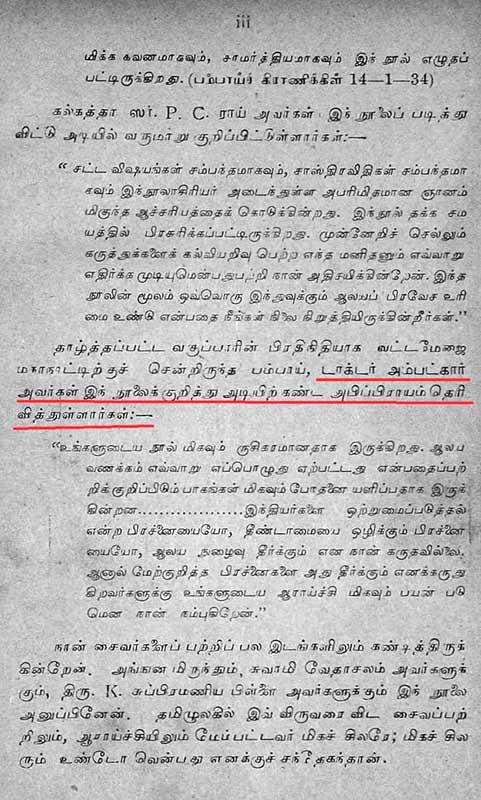 iii
மிக்க கவனமாகவும், சாமர்த்தியமாகவும் இந் நூல் எழுதப்
பட்டிருக்கிறது. (பம்பாய்க் கிராணிக்கிள் 14—1—34)
கல்கத்தா ஸர். P. C. ராய் அவர்கள் இந் நூலைப் படித்து
விட்டு அடியில் வருமாறு குறிப்பிட்டுள்ளார்கள்:—
“ சட்ட விஷயங்கள் சம்பந்தமாகவும், சாஸ்திரவிதிகள் சம்பந்தமா
கவும் இந்நூலாசிரியர் அடைந்துள்ள அபரிமிதமான ஞானம்
மிகுந்த ஆச்சரியத்தைக் கொடுக்கின்றது. இந்நூல் தக்க சம
யத்தில் பிரசுரிக்கப்பட்டிருக்கிறது. முன்னேறிச் செல்லும்
கருத்துக்களைக் கல்வியறிவு பெற்ற எந்த மனிதனும் எவ்வாறு
எதிர்க்க முடியுமென்பதுபற்றி நான் அதிசயிக்கின்றேன். இந்த
நூலின் மூலம் ஒவ்வொரு இந்துவுக்கும் ஆலயப் பிரவேச உரி
மை உண்டு என்பதை நீங்கள் நிலை நிறுத்தியிருக்கின்றீர்கள்.”
தாழ்த்தப்பட்ட வகுப்பாரின் பிரதிநிதியாக வட்டமேஜை
மகாநாட்டிற்குச் சென்றிருந்த பம்பாய், டாக்டர் அம்பட்கார்
அவர்கள் இந் நூலைக்குறித்து அடியிற் கண்ட அபிப்பிராயம் தெரி
வித்துள்ளார்கள்:—
“உங்களுடைய நூல் மிகவும் ருசிகரமானதாக இருக்கிறது. ஆலய
வணக்கம் எவ்வாறு எப்பொழுது ஏற்பட்டது என்பதைப்பற்
றிக்குறிப்பிடும் பாகங்கள் மிகவும் போதனை யளிப்பதாக இருக்
கின்றன.....................இந்தியர்களை ஒற்றுமைப்படுத்தல்
என்ற பிரச்னையையோ, தீண்டாமையை ஒழிக்கும் பிரச்னை
யையோ, ஆலய நுழைவு தீர்க்கும் என நான் கருதவில்லை.
ஆனால் மேற்குறித்த பிரச்னைகளை அது தீர்க்கும் எனக்கருது
கிறவர்களுக்கு உங்களுடைய ஆராய்ச்சி மிகவும் பயன் படு
மென நான் நம்புகிறேன்.”
நான் சைவர்களைப் பற்றிப் பல இடங்களிலும் கண்டித்திருக்
கின்றேன். அங்ஙன மிருந்தும், சுவாமி வேதாசலம் அவர்களுக்
கும், திரு. K. சுப்பிரமணிய பிள்ளை அவர்களுக்கும் இந் நூலை
அனுப்பினேன். தமிழுலகில் இவ் விருவரை விட சைவப்பற்
றிலும், ஆராய்ச்சியிலும் மேம்பட்டவர் மிகச் சிலரே; மிகச் சில
ரும் உண்டோ வென்பது எனக்குச் சந்தேகந்தான்.